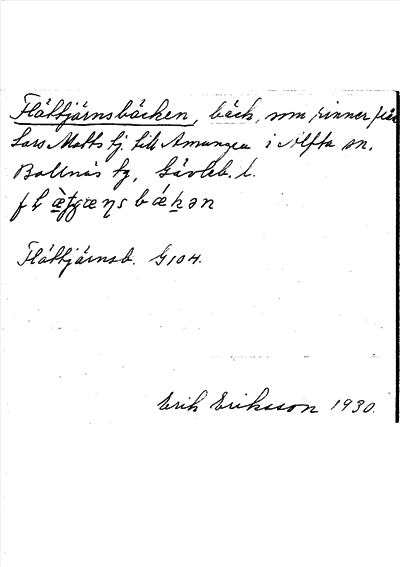 Flättjärnsbäcken, bäck, som rinner från
Lars Matts tj. till Amungen i Alfta sn,
Bollnäs tg, Gävleb. l.
Flättjärnsb. G104.
Erik Eriksson 1930.